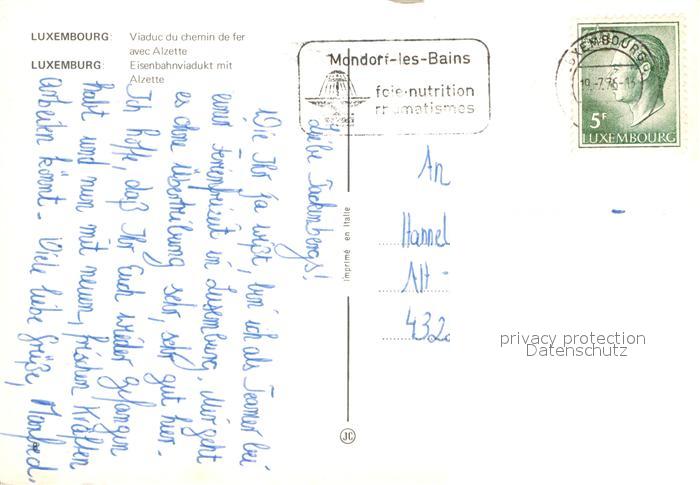 LUXEMBOURG: Viaduc du chemin de fer
avec Alzette
LUXEMBURG: Eisenbahnviadukt mit
Alzette
Mondorf-les-Bains
foie·nutrition
rhumatismes
LUXEMBOURG
5F
LUXEMBOURG
Liebe Tackenbergs!
Wie Ihr ja wißt, bin ich als Teamer bei
einer Ferienfreizeit in Luxemburg. Mir geht
es ohne Übertreibung sehr, sehr gut hier.
Ich hoffe, daß Ihr Euch wieder gefangen
habt und nun mit neuen, frischen Kräften
arbeiten könnt. Viele liebe Grüße, Manfred.
Imprimé en Italie
JC
An
Hannel
Alt-
432
privacy protection
Datenschutz